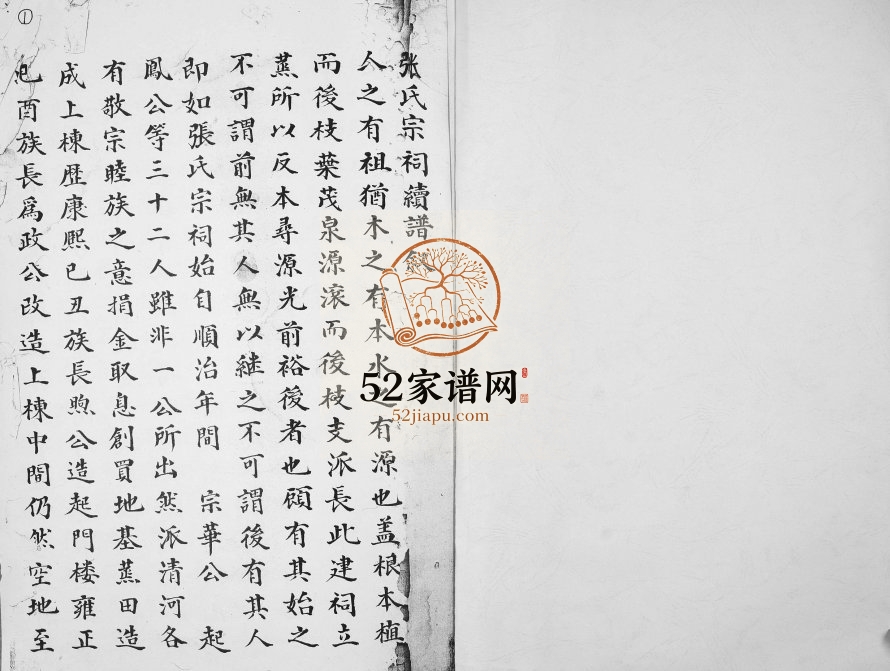 ①
张氏宗祠續譜叙
人之有祖猶木之有本水之有源也盖根本植
而後枝葉茂泉源滚而後枝支派長此建祠立
蒸所以反本尋源光前裕後者也顧有其始之
不可謂前無其人無以継之不可謂後有其人
即如張氏宗祠始自順治年間 宗華公 起
鳳公等三十二人雖非一公所出然派清河各
有敬宗睦族之意捐金取息創買地基蒸田造
成上棟歴康熙己丑族長煦公造起門楼雍正
己酉族長爲政公改造上棟中間仍然空地至
52家谱网
52jiapu.com